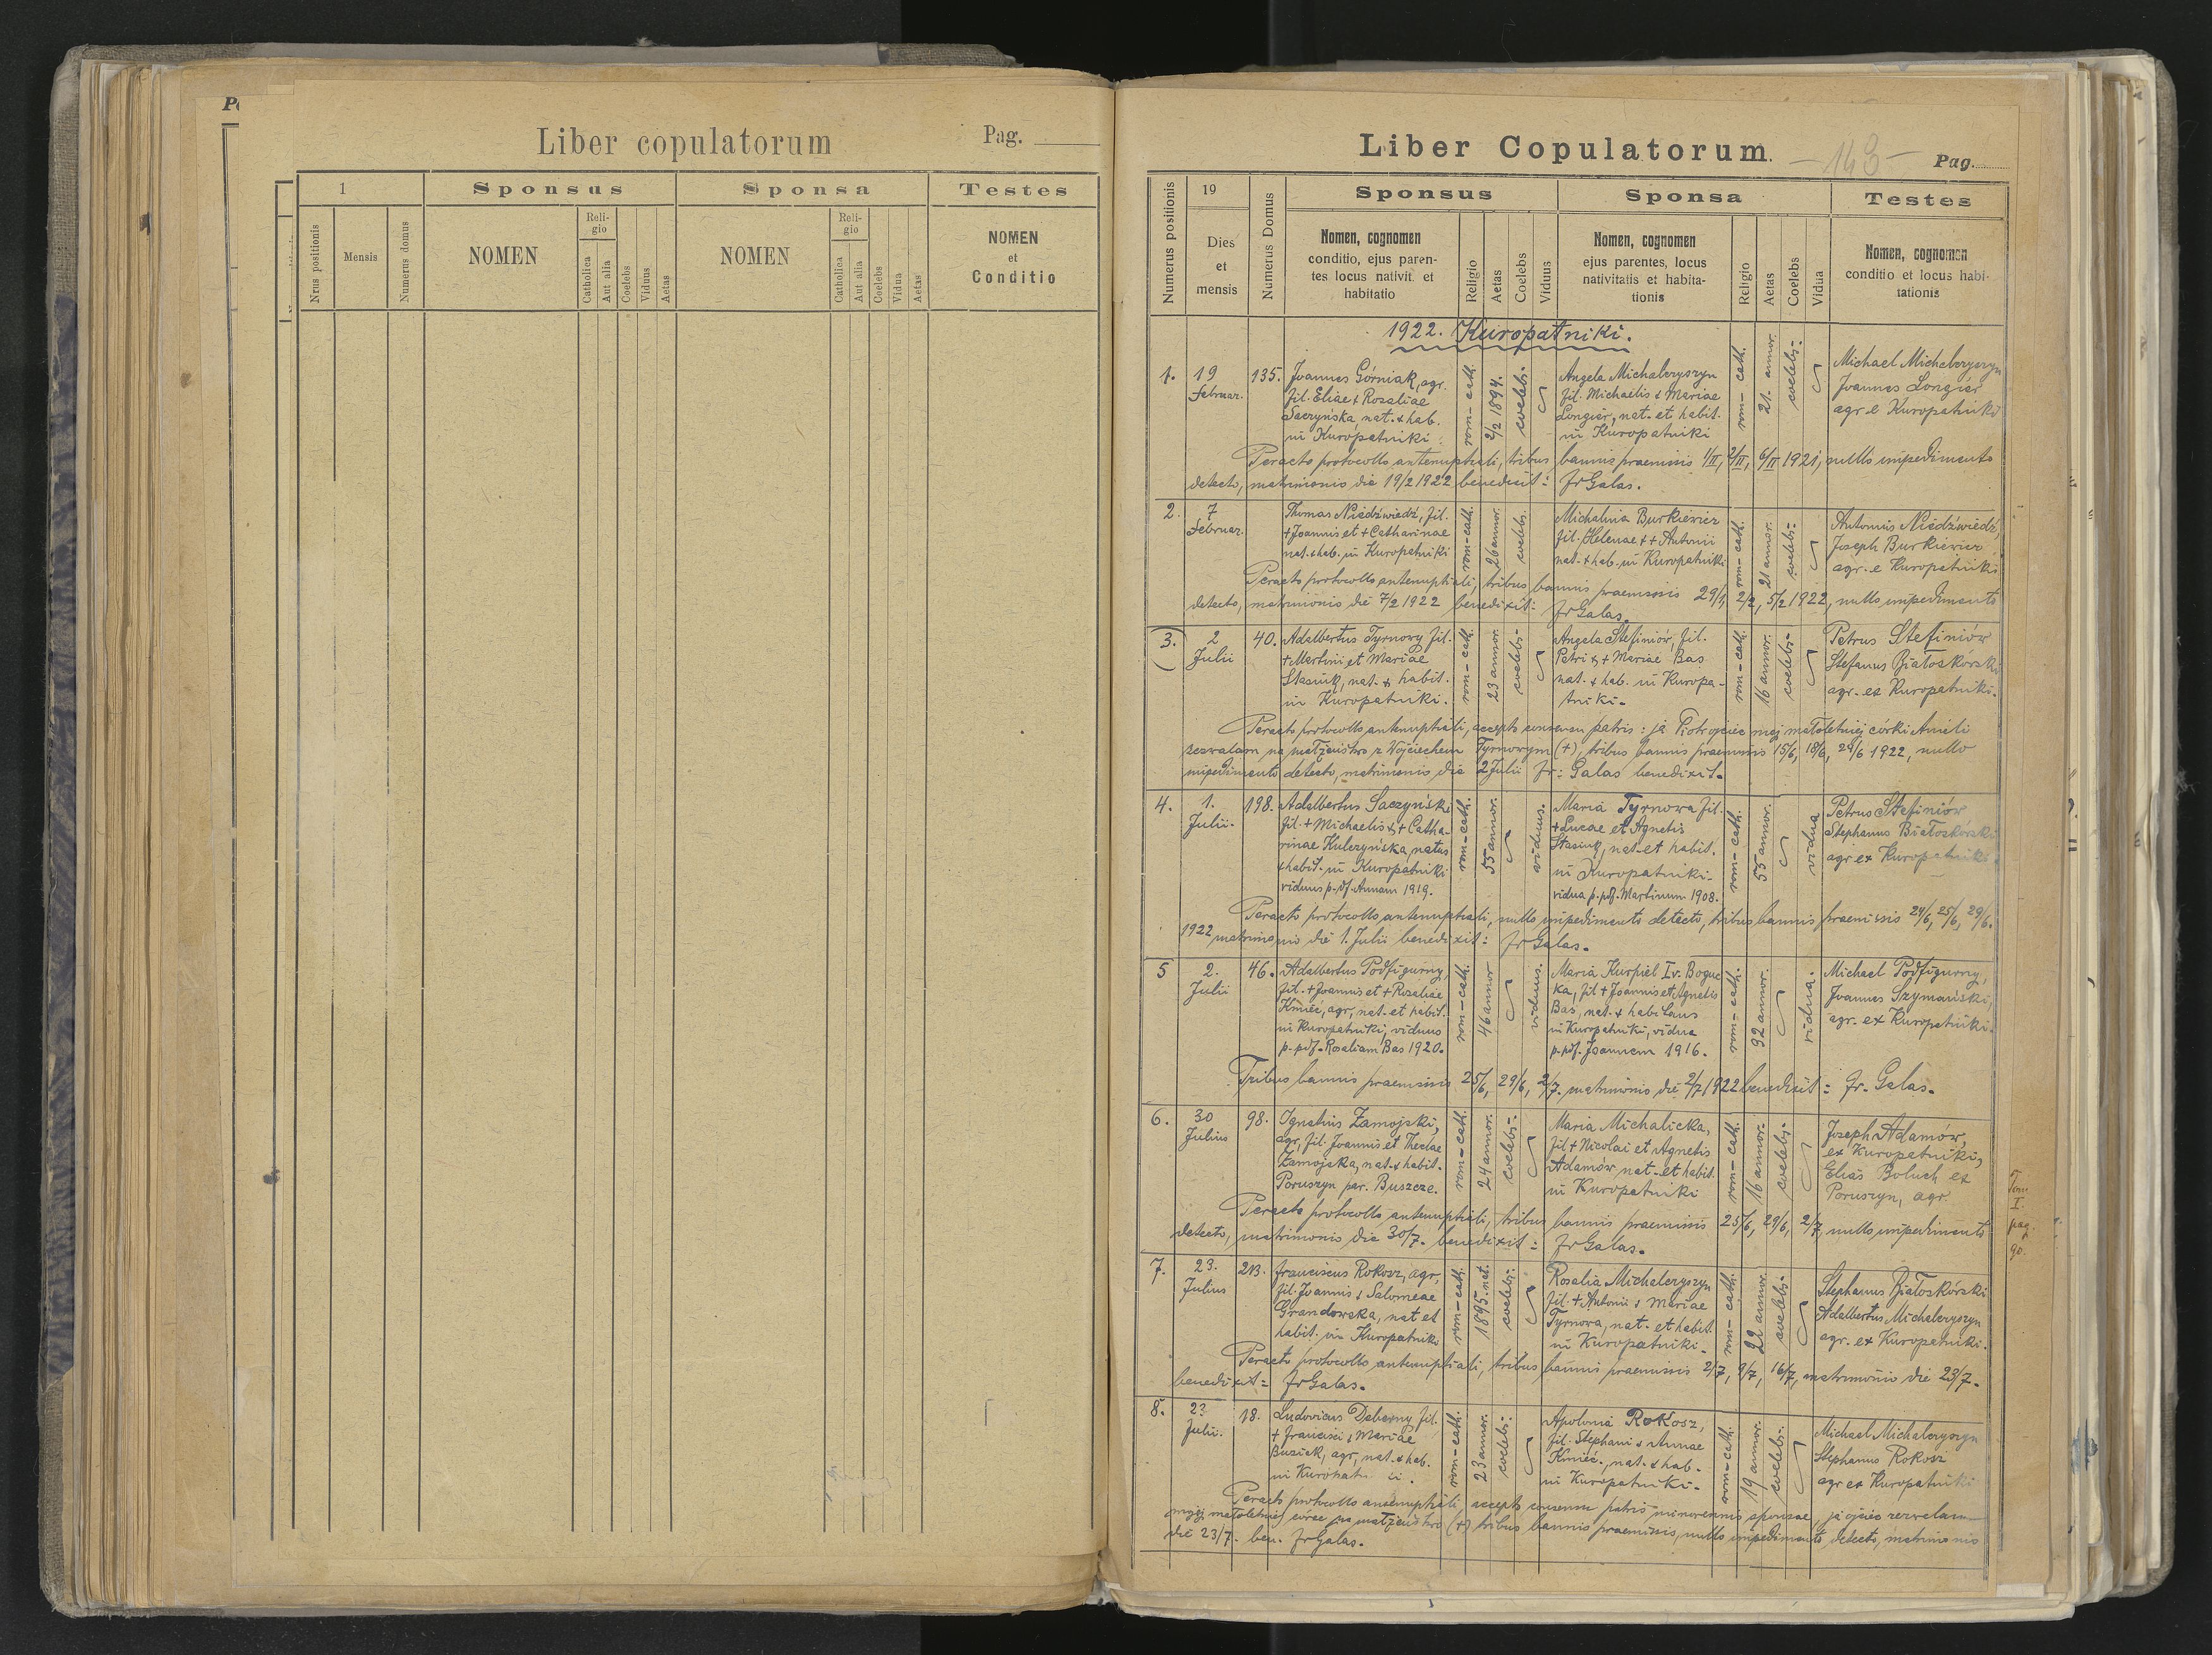 Liber copulatorum
Pag.
1
Sponsus
Sponsa
Testes
Nrus positionis
Mensis
Numerus domus
NOMEN
Religio
Catholica
Aut alia
Coelebs
Viduus
Aetas
NOMEN
Religio
Catholica
Aut alia
Coelebs
Vidua
Aetas
NOMEN
et
Conditio
Liber Copulatorum.
-143-
Pag.
Numerus positionis
19
Dies
et
mensis
Numerus Domus
Sponsus
Sponsa
Testes
Nomen, cognomen
conditio, ejus paren-
tes locus nativit. et
habitatio
Religio
Aetas
Coelebs
Viduus
Nomen, cognomen
ejus parentes, locus
nativitatis et habita-
tionis
Religio
Aetas
Coelebs
Vidua
Nomen, cognomen
conditio et locus habi-
tationis
1922. Kuropatniki.
1.
19
Februar.
135.
Joannes Górniak, agr.
fil. Eliae & Rosaliae
Saczyńska, nat. & hab.
in Kuropatniki
rom-cath.
2/2 1894.
coelebs.
Angela Michalczyszyn
fil. Michaelis & Mariae
Longiér, nat. et habit.
in Kuropatniki
rom-cath.
21. annor.
coelebs.
Michael Michalczyszyn
Joannes Longiér
agr. e Kuropatniki
Peracto protocollo antenuptiali, tribus bannis praemissis 1/II, 2/II, 6/II 1921, nullo impedimento
detecto, matrimonio die 19/2 1922 benedixit: Fr Galas.
2.
7
Februar.
Thomas Niedźwiedź, fil.
+Joannis et +Catharinae
nat. & hab. in Kuropatniki
rom-cath.
26 annor.
coelebs.
Michalina Burkiewicz
fil. Helenae & +Antonii
nat. & hab. in Kuropatniki
rom-cath.
21 annor.
coelebs-
Antonius Niedźwiedź,
Joseph Burkiewicz
agr. e Kuropatniki
Peracto protocollo antenuptiali, tribus bannis praemissis 29/1, 2/2, 5/2 1922, nullo impedimento
detecto, matrimonio die 7/2 1922 benedixit: Fr Galas.
3.
2
Julii
40.
Adalbertus Tyrnowy fil.
+Martini et Mariae
Stasiuk, nat. & habit.
in Kuropatniki.
rom-cath.
23 annor.
coelebs-
Angela Stefiniów, fil.
Petri & +Mariae Bas
nat. & hab. in Kuropa-
tniki-
rom-cath.
16 annor.
coelebs-
Petrus Stefiniów
Stefanus Białoskórski
agr. ex Kuropatniki.
Peracto protocollo antenuptiali, accepto consensu patris: ja Piotr ojciec mej małoletniej córki Anieli
zezwalam na małżeństwo z Wojciechem Tyrnowym (+), tribus bannis praemissis 15/6, 18/6, 29/6 1922, nullo
impedimento detecto, matrimonio die 2 Julii Fr: Galas benedixit.
4.
1.
Julii.
198.
Adalbertus Saczyński
fil. +Michaelis & +Catha-
rinae Kulczyńska, natus
& habit. in Kuropatniki
viduus p. df. Annam 1919.
rom-cath.
55 annor.
viduus.
Maria Tyrnowa fil.
+Lucae et Agnetis
Stasiuk, nat. et habit.
in Kuropatniki.
vidua p. pdf. Martinum 1908.
rom-cath.
55 annor.
vidua
Petrus Stefiniów
Stephanus Białoskórski
agr ex Kuropatniki.
Peracto protocollo antenuptiali, nullo impedimento detecto, tribus bannis praemissis 24/6, 25/6, 29/6.
1922 matrimonio die 1. Julii benedixit: Fr Galas.
5
2.
Julii
46.
Adalbertus Podfigurny,
fil. +Joannis et +Rosaliae
Kmieć, agr, nat. et habit.
in Kuropatniki, viduus
p. pdf. Rosaliam Bas 1920.
rom-cath.
46 annor
viduus.
Maria Kurpiel Iv. Boguc
ka, fil +Joannis et Agnetis
Bas, nat. & habitans
in Kuropatniki, vidua
p. pdf. Joannem 1916.
rom-cath.
32 annor.
vidua.
Michael Podfigurny,
Joannes Szymański,
agr. ex Kuropatniki.
Tribus bannis praemissis 25/6, 29/6, 2/7. matrimonio die 2/7 1922 benedixit: Fr. Galas.
6.
30
Julius
98.
Ignatius Zamojski,
agr, fil. Joannis et Theclae
Zamojska, nat. & habit.
Poruszyn par. Buszcze.
rom-cath.
24 annor.
coelebs-
Maria Michalicka,
fil +Nicolai et Agnetis
Adamów nat. et habit.
in Kuropatniki
rom-cath.
16 annor.
coelebs-
Joseph Adamów,
ex Kuropatniki,
Elias Boluch ex
Poruszyn, agr.
Tom
I.
pag.
90.
Peracto protocollo antenuptiali, tribus bannis praemissis 25/6, 29/6, 2/7, nullo impedimento
detecto, matrimonio die 30/7. benedixit: Fr Galas.
7.
23.
Julius
213.
Franciscus Rokosz, agr,
fil. Joannis & Salomeae
Grandowska, nat et
habit. in Kuropatniki
rom-cath.
1895. nat.
coelebs-
Rosalia Michalczyszyn
fil. +Antonii & Mariae
Tyrnowa, nat. et habit.
in Kuropatniki.
rom-cath.
22 annor.
coelebs-
Stephanus Białoskórski
Adalbertus Michalczyszyn
agr. ex Kuropatniki.
Peracto protocollo antenuptiali, tribus bannis praemissis 2/7, 9/7, 16/7, matrimonio die 23/7.
benedixit= Fr Galas.
8.
23
Julii.
18.
Ludovicus Deberny fil.
+ Francisci & Mariae
Buziak, agr, nat. & hab.
in Kuropatniki.
rom-cath.
23 annor.
coelebs-
Apolonia Rokosz,
fil. Stephani & Annae
Kmieć, nat. & hab.
in Kuropatniki.
rom-cath.
19 annor.
coelebs-
Michael Michalczyszyn
Stephanus Rokosz
agr ex Kuropatniki
Peracto protocollo antenuptiali, accepto consensu patris minorennis sponsae, ja ojciec zezwalam
mojej małoletniej córce na małżeństwo (+) tribus bannis praemissis, nullo impedimento detecto, matrimonio
die 23/7. ben. Fr Galas.